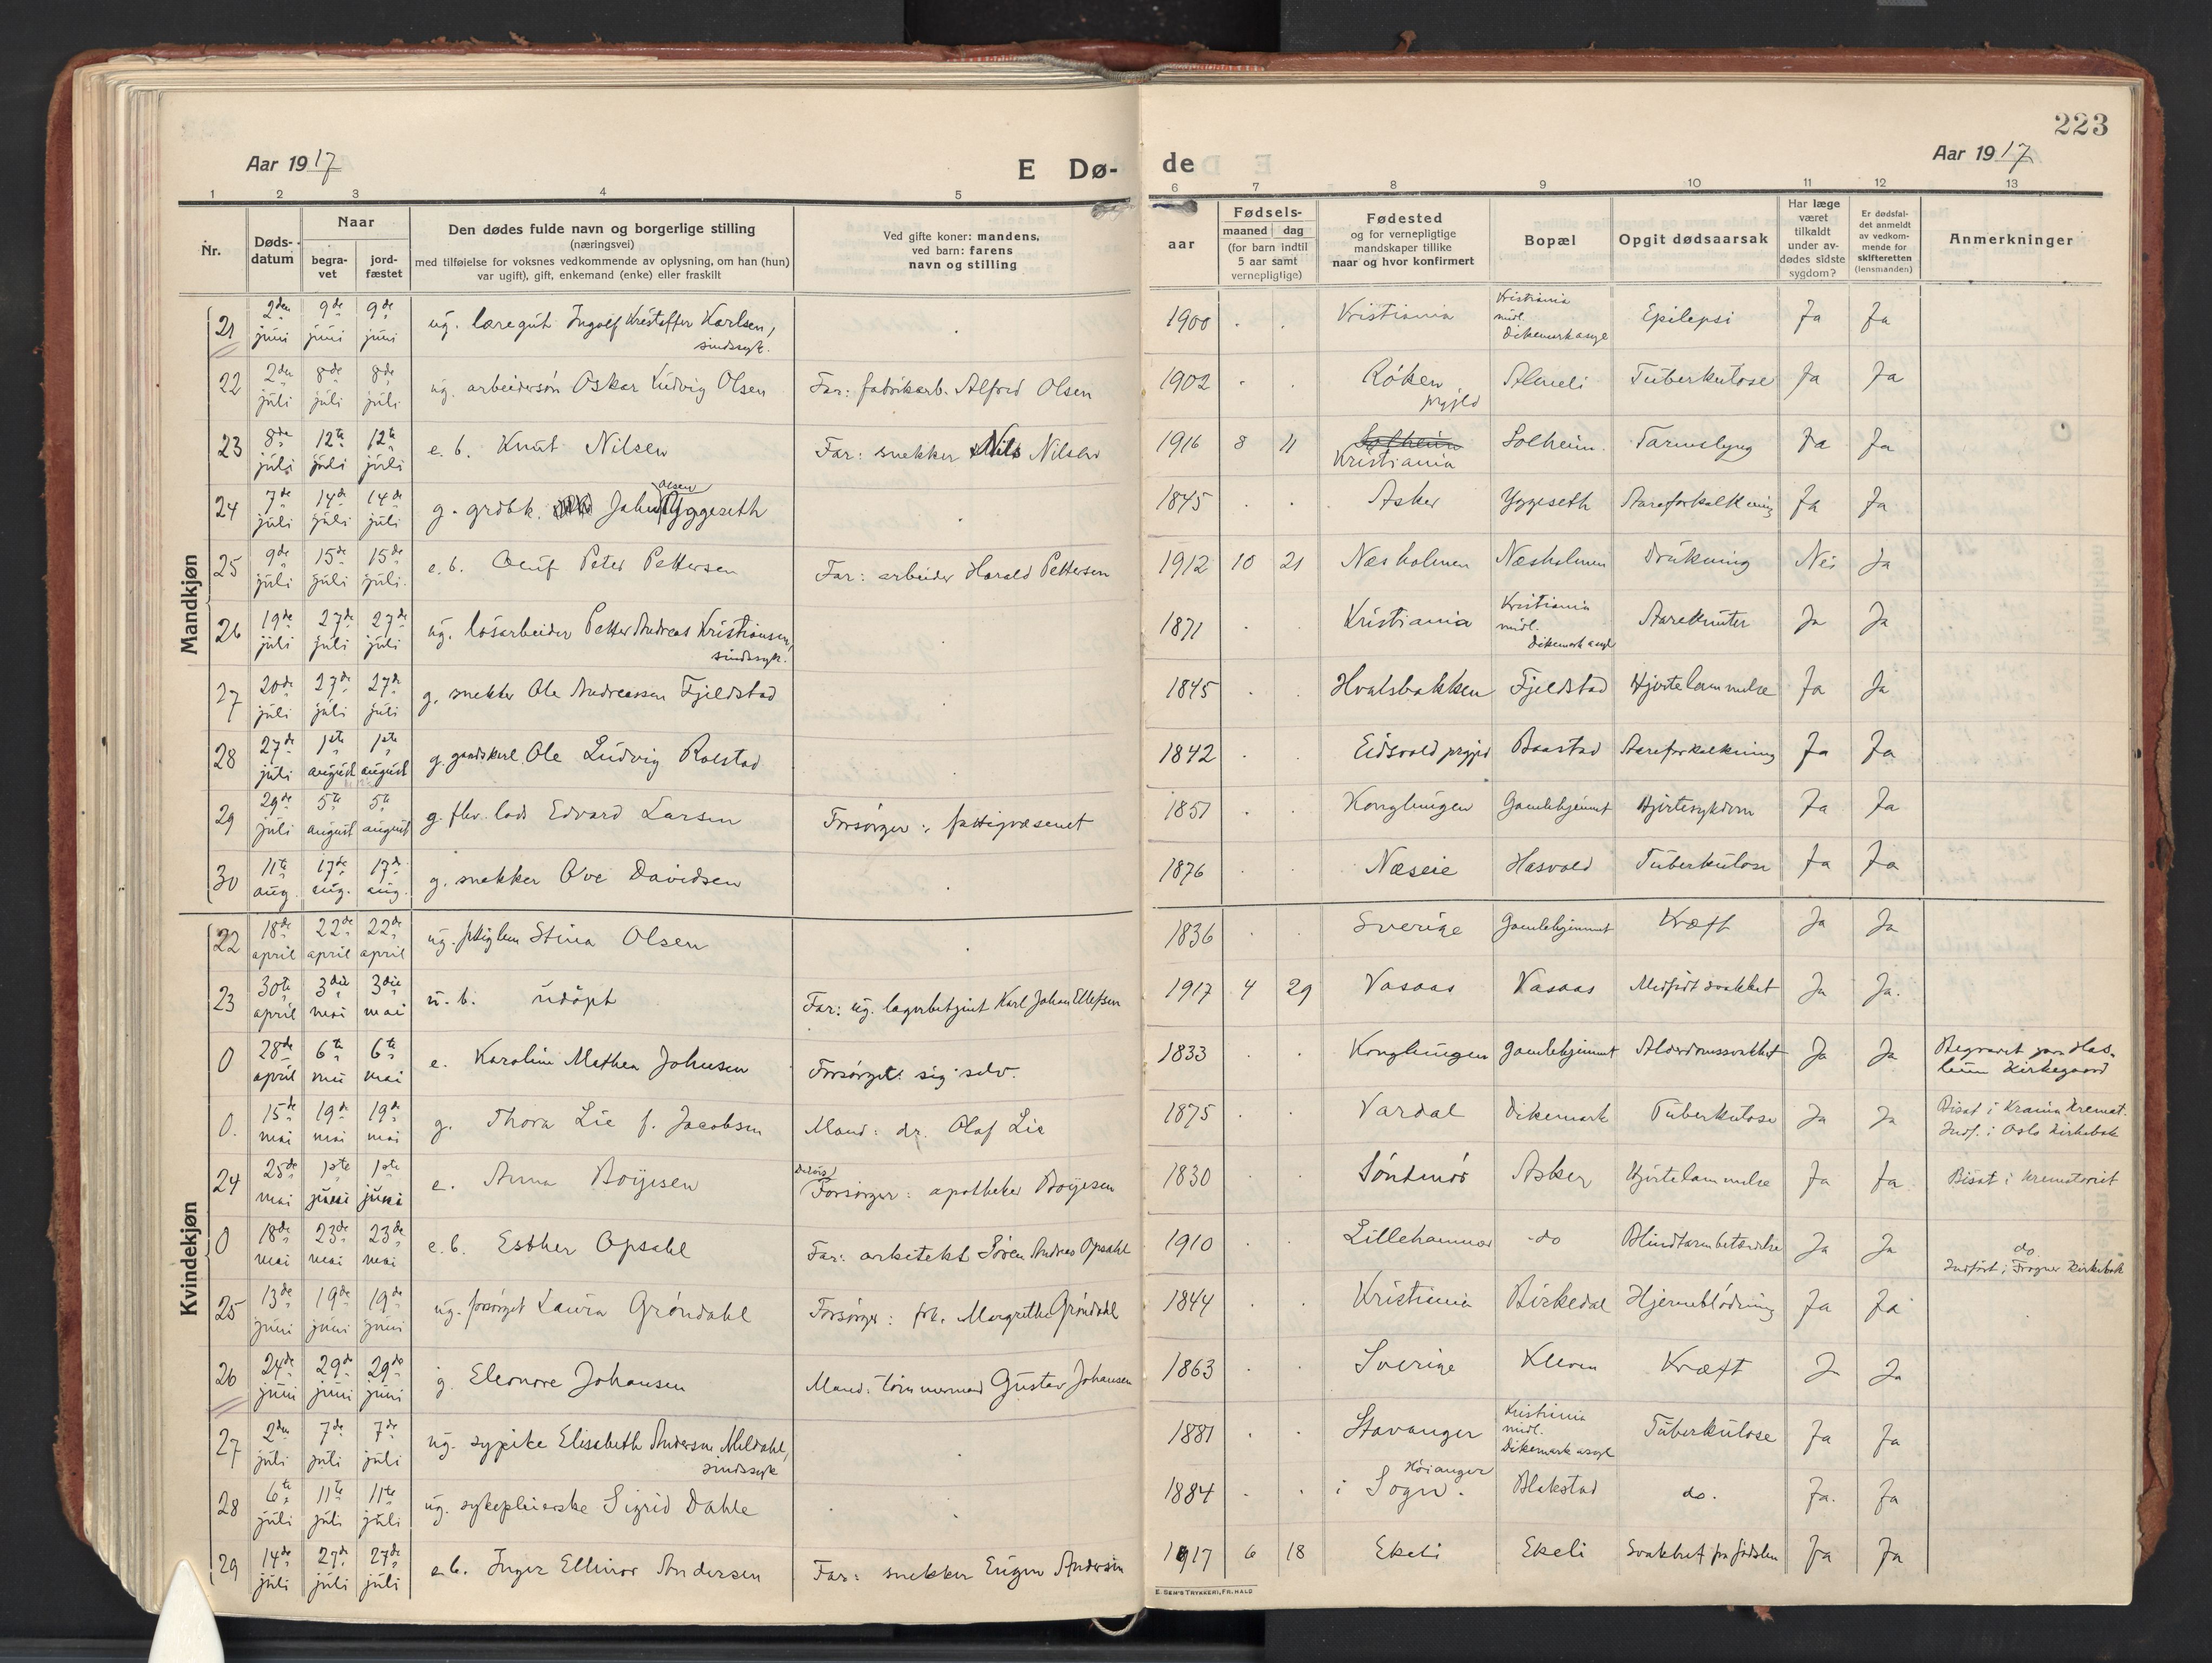 223
Aar 1917
E Dø-
de
Aar 1917
1 2 3 4 5 6 7 8 9 10 11 12 13
Nr.
Døds-
datum
Naar
begra-
vet
jord-
fæstet
Den dødes fulde navn og borgerlige stilling
(næringsvei)
med tilføielse for voksnes vedkommende av oplysning, om han (hun)
var ugift), gift, enkemand (enke) eller fraskilt
Ved gifte koner: mandens,
ved barn: farens
navn og stilling
aar
Fødsels-
maaned dag
(for barn indtil
5 aar samt
vernepligtige)
Fødested
og for vernepligtige
mandskaper tillike
naar og hvor konfirmert
Bopæl
Opgit dødsaarsak
Har læge
været
tilkaldt
under av-
dødes sidste
sygdom?
Er dødsfal-
det anmeldt
av vedkom-
mende for
skifteretten
(lensmanden)
Anmerkninger
Mandkjøn
21 2den juni 9de juni 9de juni ug. læregut Ingolf Kristoffer Karlsen, sindssyk. 1900 Kristiania Kristiania midl. Dikemark asyl Epilepsi Ja Ja
22 2den juli 8de juli 8de juli ug. arbeidersøn Oskar Ludvig Olsen Far: fabrikarb. Alfred Olsen 1902 Røken prgjld Tuberkulose Ja Ja
23 8de juli 12te juli 12te juli e. b. Knut Nilsen Far: snekker Nils Nilsen 1916 8 11 Solheim Kristiania Solheim Tarmslyng Ja Ja
24 7de juli 14de juli 14de juli g. grdbk. Johan Olsen Yggeseth 1845 Asker Yggeseth Aareforkalkning Ja Ja
25 9de juli 15de juli 15de juli. e. b. Oluf Peter Pettersen Far: arbeider Harald Pettersen 1912 10 21 Næsholmen Næsholmen Drukning Nei Ja
26 19de juli 27de juli 27de juli ug. løsarbeider Petter Andreas Kristiansen, sindssyk. 1871 Kristiania Kristiania midl. Dikemark asyl Ja Ja
27 20de juli 27de juli 27de juli g. snekker Ole Andreassen Fjeldstad 1845 Hvalsbakken Fjeldstad Hjertelammelse Ja Ja
28 27de juli 1ste august 1ste august g. gaardskarl Ole Ludvig Rolstad 1842 Eidsvold prgjld Baastad Aareforkalkning Ja Ja
29 29de juli 5te august 5te august g. fhv. lods Edvard Larsen Forsørger: fattigvæsenet 1851 Konglungen Gamlehjemmet Hjertesykdom Ja Ja
30 11te aug. 17de aug. 17de aug. g. snekker Ove Davidsen 1876 Næseie Hasvold Tuberkulose Ja Ja
Kvindekjøn
22 18de april 22de april 22de april ug. Stina Olsen 1836 Sverige Gamlehjemmet Kræft Ja Ja
23 30te april 3die mai 3die mai u. b. udøpt Far: ug. lagerbetjent Karl Johan Ellefsen 1917 4 29 Vasaas Vasaas Medfødt svakhet Ja Ja.
0 28de april 6te mai 6te mai e. Karoline Mathea Johnsen Forsørget sig selv. 1833 Konglungen Gamlehjemmet Alderdomssvakhet Ja Ja Begravet paa Has-
lum Kirkegaard
0. 15de mai 19de mai 19de mai g. Thora Lie f. Jacobsen Mand: dr. Olaf Lie 1875 Vardal Dikemark Tuberkulose Ja Ja Bisat i Krania kremat.
Indf. i Oslo kirkebok
24 25de mai 1ste juni 1ste juni e. Anna Boyesen Forsørger: apotheker Boyesen 1830 Søndmør Asker Hjertelammelse Ja Ja Bisat i krematoriet
0 18de mai 23de mai 23de mai e. b. Esther Opsahl Far: arkitekt Søren Andreas Opsahl 1910 Lillehammer do Blindtarmbetændelse Ja Ja do.
Indført i Frogner kirkebok
25 13de juni 19de juni 19de juni ug. forsørget Laura Grøndahl Forsørger: frk. Margrethe Grøndahl 1844 Kristiania Birkedal Hjerneblødning Ja Ja
26 24de juni 29de juni 29de juni g. Eleonore Johansen Mand: tømmermand Gustav Johansen 1863 Sverige Kræft Ja Ja
27 2den juli 7de juli 7de juli ug. sypike Elisabeth Andersen Meldahl, sindssyk 1881 Stavanger Kristiania midl. Dikemark asyl Tuberkulose Ja Ja
28 6te juli 11te juli 11te juli ug. sykepleierske Sigrid Dahle 1884 Høianger i Sogn. Blakstad do. Ja. Ja
29 14de juli 27de juli 27de juli e. b. Inger Ellinor Andersen Far: snekker Eugen Andersen 1917 6 18 Ekeli Ekeli Svakhet fra fødslen Ja Ja
E. SEM'S TRYKKERI, FR.HALD